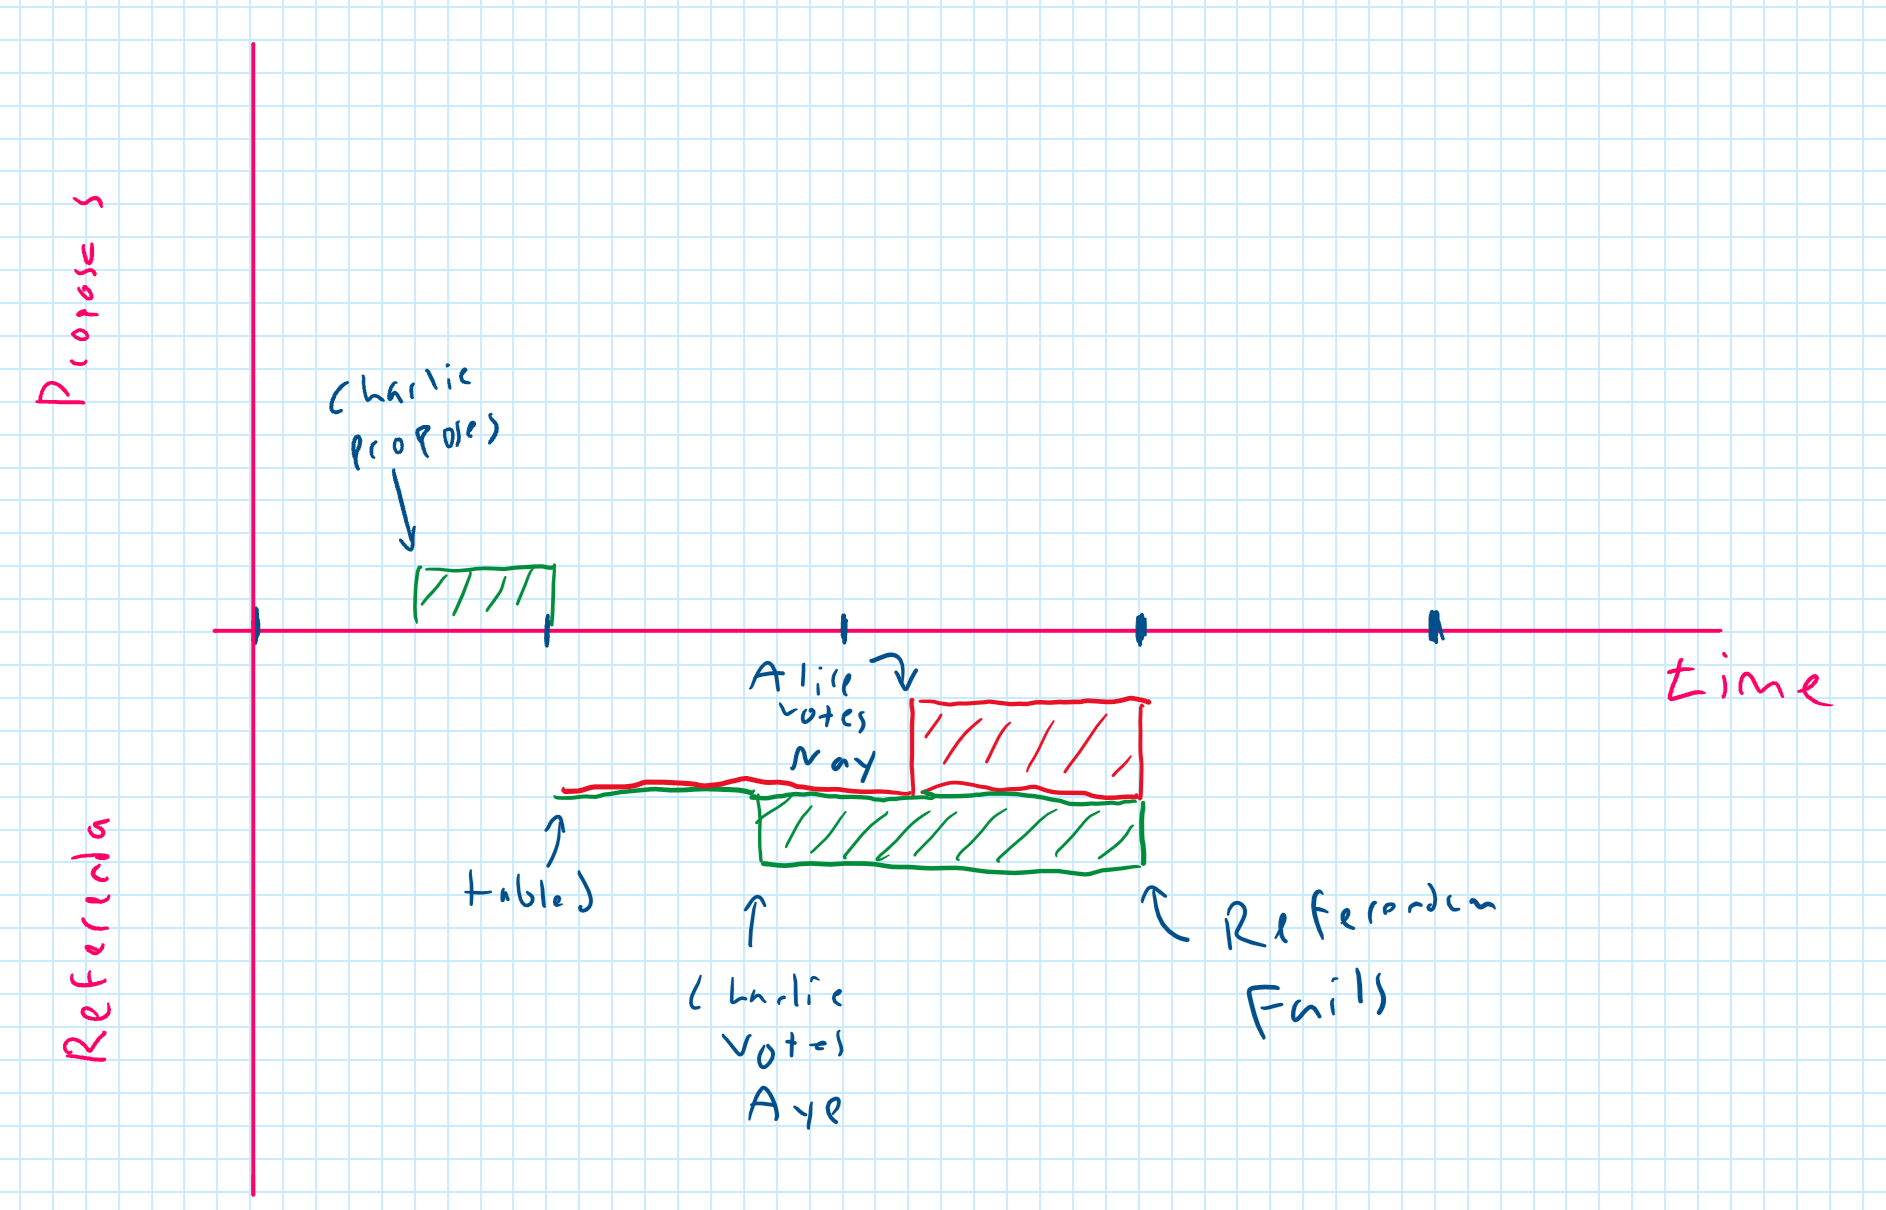 Proposes
Charlie
proposes
time
Alice
votes
Nay
Referenda
tabled
Charlie
votes
Aye
Referendum
Fails